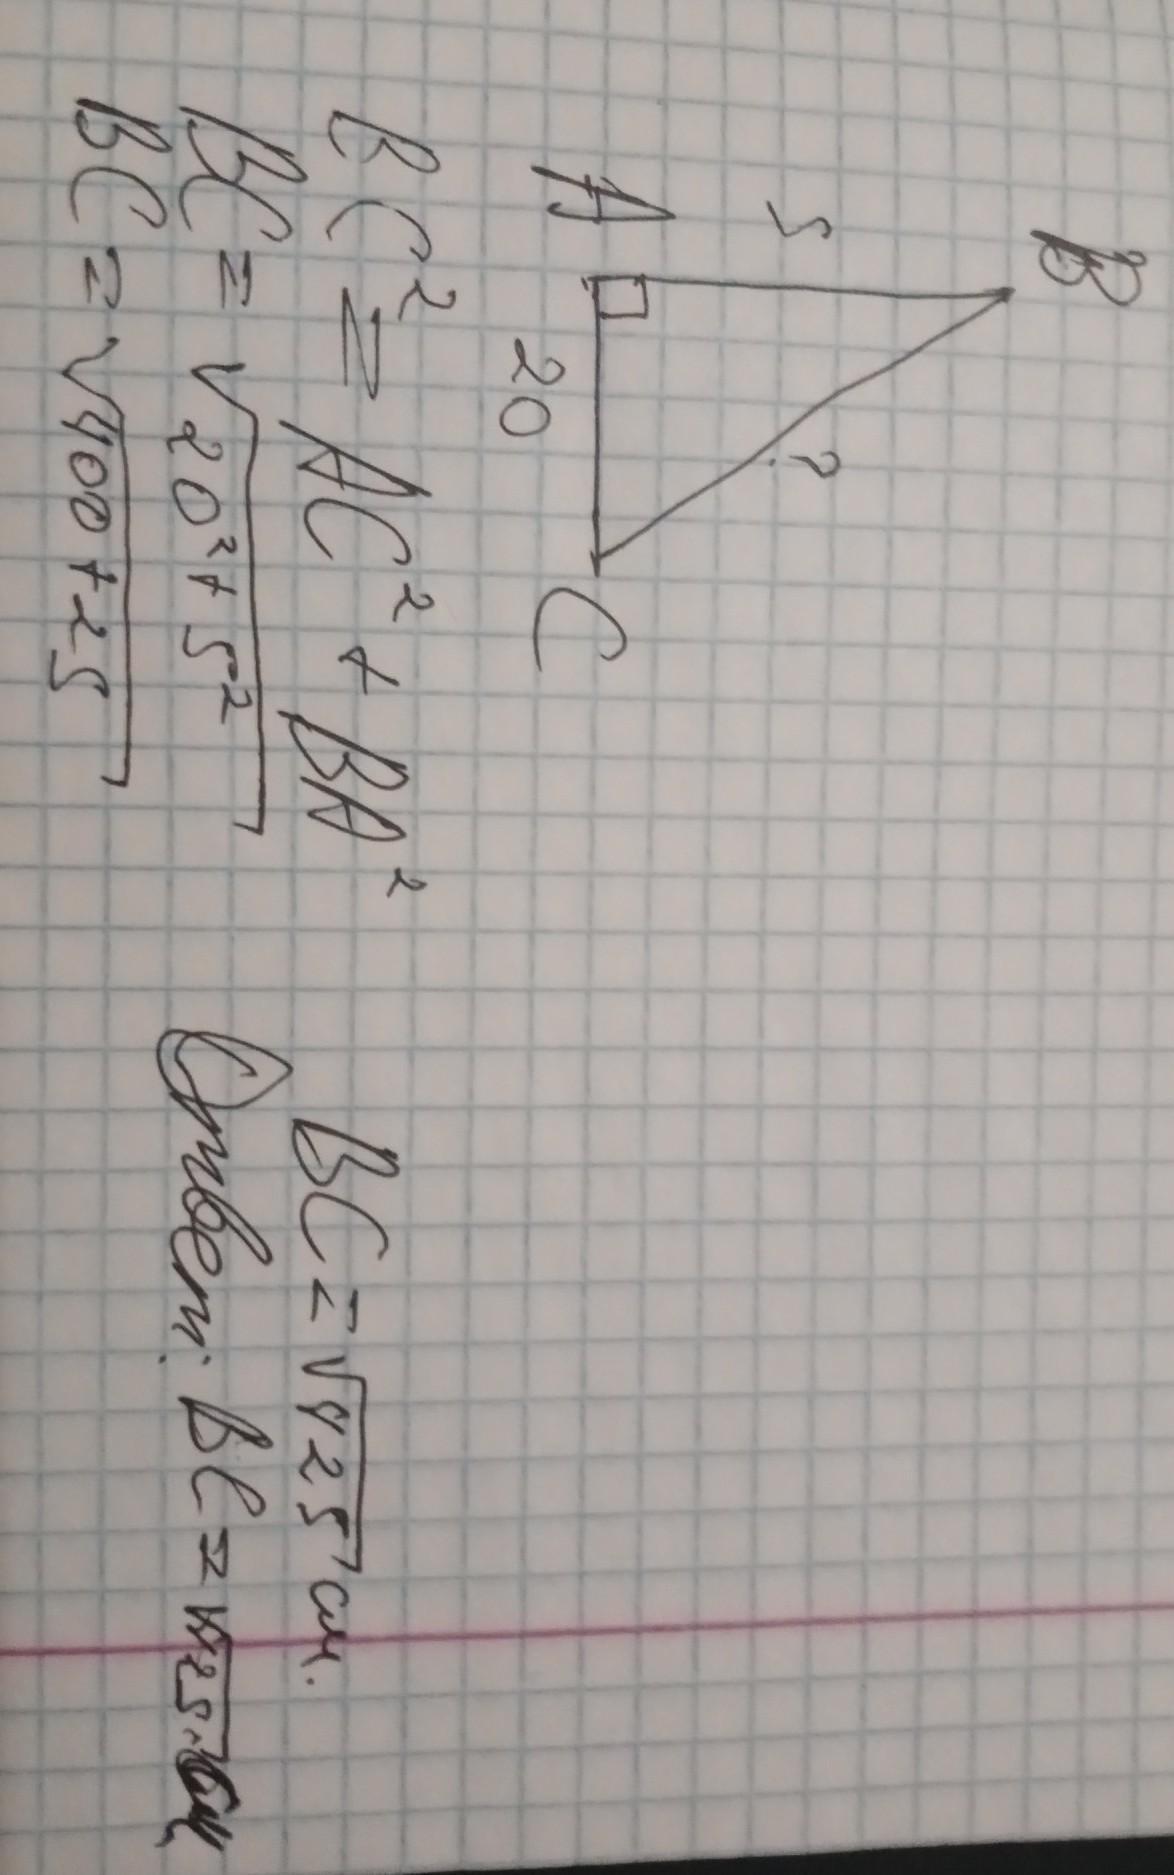 B
5
?
A
20
C
BC² = AC² + BA²
BC = √20²+5²
BC = √400+25
BC = √425 см.
Ответ: BC = √425 см